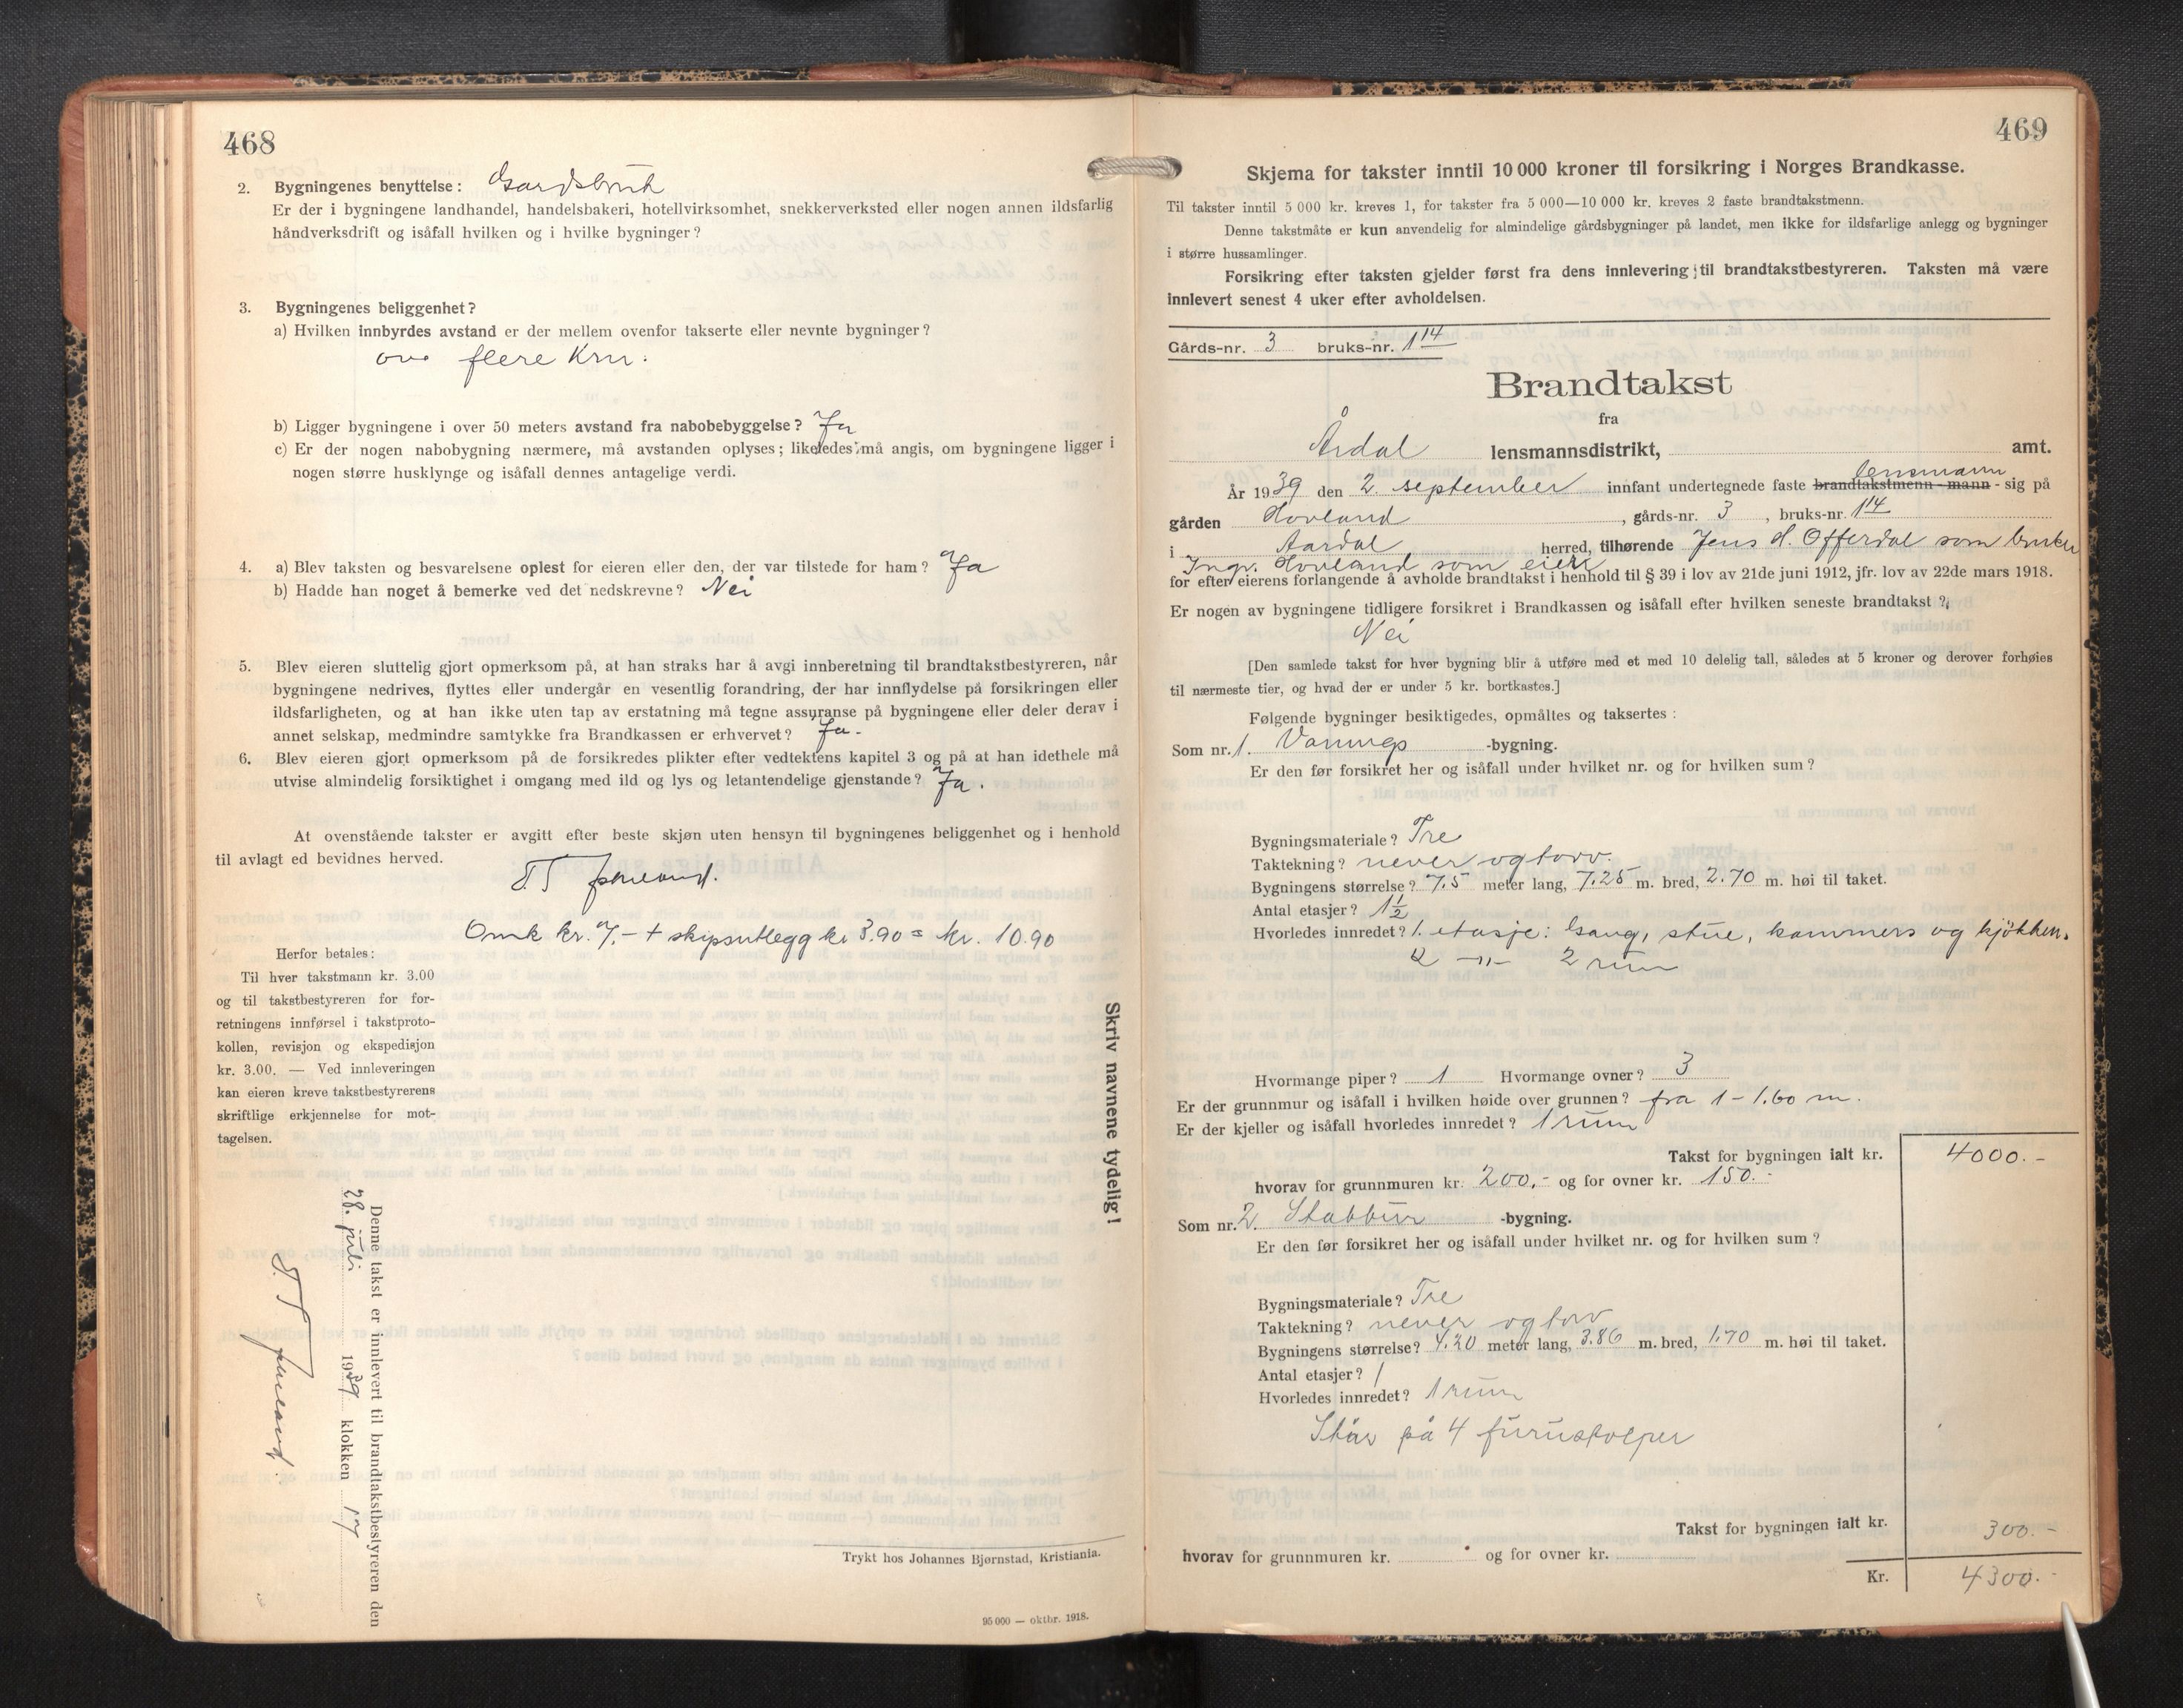 468
2. Bygningenes benyttelse: Gardsbruk
Er der i bygningene landhandel, handelsbakeri, hotellvirksomhet, snekkerverksted eller nogen annen ildsfarlig
håndverksdrift og isåfall hvilken og i hvilke bygninger?
3. Bygningenes beliggenhet?
a) Hvilken innbyrdes avstand er der mellem ovenfor takserte eller nevnte bygninger?
flere Km.
b) Ligger bygningene i over 50 meters avstand fra nabobebyggelse? Ja
c) Er der nogen nabobygning nærmere, må avstanden oplyses; likeledes må angis, om bygningene ligger i
nogen større husklynge og isåfall dennes antagelige verdi.
4. a) Blev taksten og besvarelsene oplest for eieren eller den, der var tilstede for ham? Ja
b) Hadde han noget å bemerke ved det nedskrevne? Nei
5. Blev eieren sluttelig gjort opmerksom på, at han straks har å avgi innberetning til brandtakstbestyreren, når
bygningene nedrives, flyttes eller undergår en vesentlig forandring, der har innflydelse på forsikringen eller
ildsfarligheten, og at han ikke uten tap av erstatning må tegne assuranse på bygningene eller deler derav i
annet selskap, medmindre samtykke fra Brandkassen er erhvervet? Ja.
6. Blev eieren gjort opmerksom på de forsikredes plikter efter vedtektens kapitel 3 og på at han idethele må
utvise almindelig forsiktighet i omgang med ild og lys og letantendelige gjenstande? Ja.
At ovenstående takster er avgitt efter beste skjøn uten hensyn til bygningenes beliggenhet og i henhold
til avlagt ed bevidnes herved.
Omk kr. 7.- + skipsutlegg kr 3.90 = kr. 10.90
Herfor betales:
Til hver takstmann kr. 3.00
og til takstbestyreren for for-
retningens innførsel i takstproto-
kollen, revisjon og ekspedisjon
kr. 3.00. — Ved innleveringen
kan eieren kreve takstbestyrerens
skriftlige erkjennelse for mot-
tagelsen.
Skriv navnene tydelig!
Denne takst er innlevert til brandtakstbestyreren den
28. juli 1939 klokken 17
Trykt hos Johannes Bjørnstad, Kristiania.
95 000 — oktbr. 1918.
469
Skjema for takster inntil 10 000 kroner til forsikring i Norges Brandkasse.
Til takster inntil 5 000 kr. kreves 1, for takster fra 5 000—10 000 kr. kreves 2 faste brandtakstmenn.
Denne takstmåte er kun anvendelig for almindelige gårdsbygninger på landet, men ikke for ildsfarlige anlegg og bygninger
i større hussamlinger.
Forsikring efter taksten gjelder først fra dens innlevering til brandtakstbestyreren. Taksten må være
innlevert senest 4 uker efter avholdelsen.
Gårds-nr. 3 bruks-nr. 1 14
Brandtakst
fra
Årdal lensmannsdistrikt, amt.
lensmann
År 1939 den 2. september innfant undertegnede faste brandtakstmenn - mann - sig på
gården Hovland, gårds-nr. 3, bruks-nr. 1 14
i Aardal herred, tilhørende Jens H. Offerdal som bruker
Ingv. Hovland som eier
for efter eierens forlangende å avholde brandtakst i henhold til § 39 i lov av 21de juni 1912, jfr. lov av 22de mars 1918.
Er nogen av bygningene tidligere forsikret i Brandkassen og isåfall efter hvilken seneste brandtakst?
Nei
[Den samlede takst for hver bygning blir å utføre med et med 10 delelig tall, således at 5 kroner og derover forhøies
til nærmeste tier, og hvad der er under 5 kr. bortkastes.]
Følgende bygninger besiktigedes, opmåltes og taksertes:
Som nr. 1. Vånings -bygning.
Er den før forsikret her og isåfall under hvilket nr. og for hvilken sum?
Bygningsmateriale? Tre
Taktekning? never og torv.
Bygningens størrelse? 7.5 meter lang, 7.25 m. bred, 2.70 m. høi til taket.
Antal etasjer? 1 1/2
Hvorledes innredet? 1. etasje: Gang, stue, kammers og kjøkken.
2 -"- 2 rum
Hvormange piper? 1 Hvormange ovner? 3
Er der grunnmur og isåfall i hvilken høide over grunnen? fra 1 - 1.60 m.
Er der kjeller og isåfall hvorledes innredet? 1 rum
Takst for bygningen ialt kr. 4000.-
hvorav for grunnmuren kr. 200,- og for ovner kr. 150.-
Som nr. 2. Stabbur -bygning.
Er den før forsikret her og isåfall under hvilket nr. og for hvilken sum?
Bygningsmateriale? Tre
Taktekning? never og torv
Bygningens størrelse? 4.20 meter lang, 3.86 m. bred, 1.70 m. høi til taket.
Antal etasjer? 1
Hvorledes innredet? 1 rum
Står på 4 furustolper
Takst for bygningen ialt kr. 300.-
hvorav for grunnmuren kr. og for ovner kr.
Kr. 4300.-